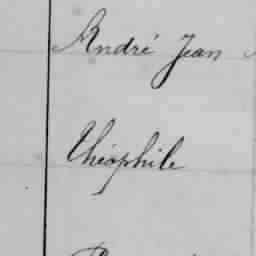 André Jean
Théophile